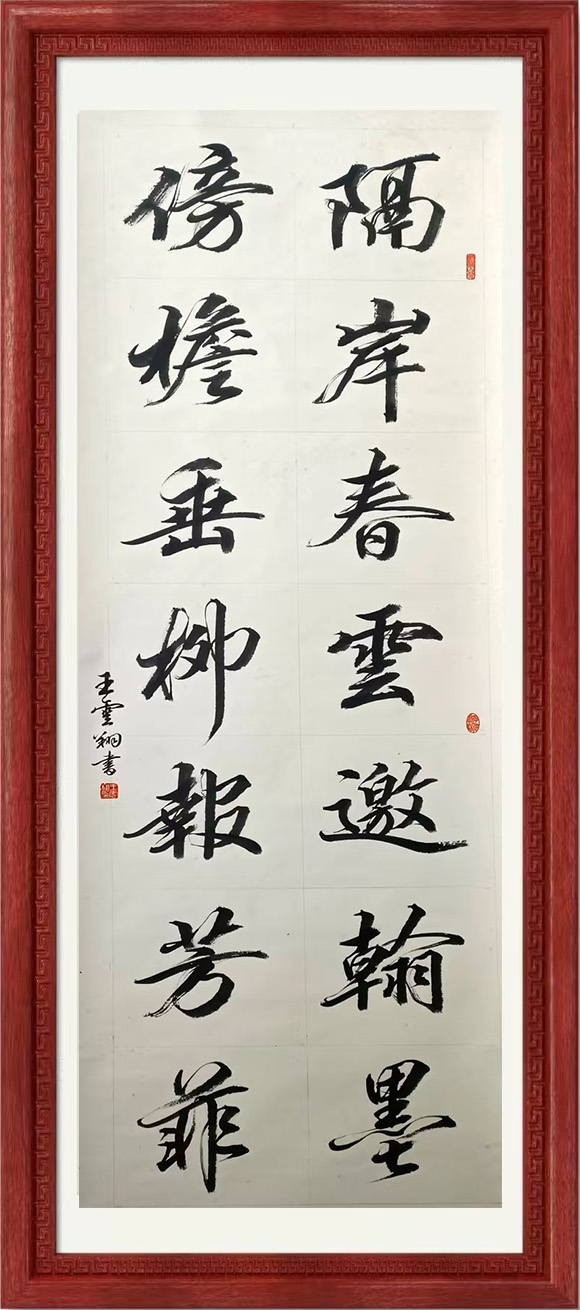 隔岸春雲邀翰墨
傍檐垂柳報芳菲
王雲翔書